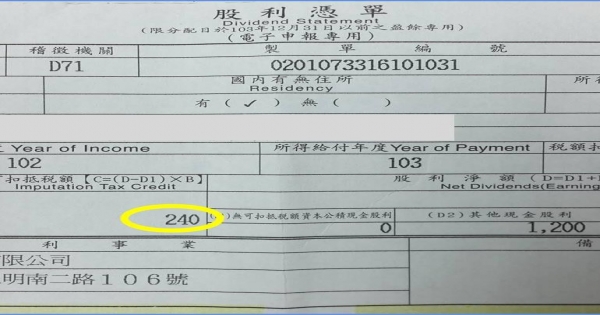 股利憑單
Dividend Statement
(限分配日於103年12月31日以前之盈餘專用)
(電子申報專用)
稽徵機關 製單編號
D71 0201073316101031
國內有無住所 所
Residency
有 ( ✓ ) 無 ( )
Year of Income 所得給付年度Year of Payment 稅額扣
102 103
可扣抵稅額【C=(D-D1)×B】 股利淨額 (D=D1+
Imputation Tax Credit Net Dividends(Earning
240 無可扣抵稅額資本公積現金股利 0 (D2)其他現金股利 1,200
利事業 備
限公司
明南二路106號